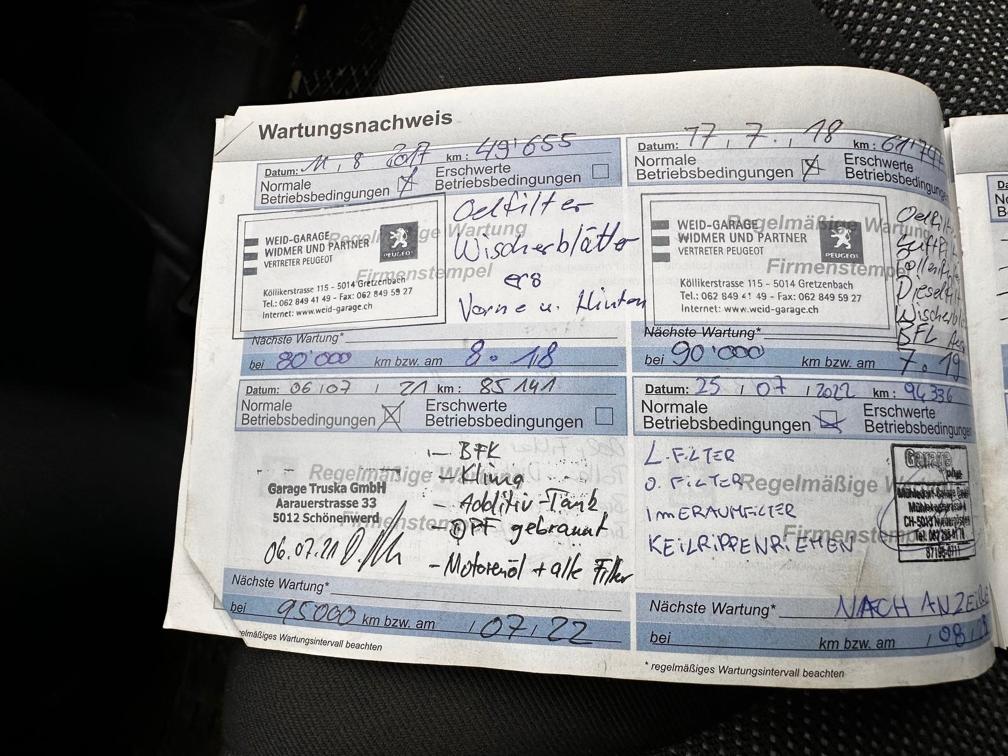 Wartungsnachweis
Datum: 11 , 8 2017 km : 49'655
Normale
Betriebsbedingungen
Erschwerte
Betriebsbedingungen
WEID-GARAGE
WIDMER UND PARTNER
VERTRETER PEUGEOT
PEUGEOT
Köllikerstrasse 115 - 5014 Gretzenbach
Tel.: 062 849 41 49 - Fax: 062 849 59 27
Internet: www.weid-garage.ch
Regelmäßige Wartung
Firmenstempel
Oelfilter
Wischerblätter
ers
Vorne u. Hinten
Nächste Wartung*
bei 80'000 km bzw. am 8. 18
Datum: 17, 7. , 18 km:
Normale
Betriebsbedingungen
Erschwerte
Betriebsbedingungen
WEID-GARAGE
WIDMER UND PARTNER
VERTRETER PEUGEOT
PEUGEOT
Köllikerstrasse 115 - 5014 Gretzenbach
Tel.: 062 849 41 49 - Fax: 062 849 59 27
Internet: www.weid-garage.ch
Regelmäßige Wartung
Firmenstempel
Nächste Wartung*
bei 90'000 km bzw. am 7. 19
Datum: 06 / 07 / 21 km : 85 141
Normale
Betriebsbedingungen
Erschwerte
Betriebsbedingungen
Regelmäßige
Garage Truska GmbH
Aarauerstrasse 33
5012 Schönenwerd
Firmenstempel
06.07.21
- BFK
- Klima
- Additiv-Tank
- DPF gebrannt
- Motorenöl + alle Filter
Nächste Wartung*
bei 95000 km bzw. am / 07 / 22
Datum: 25 / 07 / 2022 km : 94 336
Normale
Betriebsbedingungen
Erschwerte
Betriebsbedingungen
L. FILTER
O. FILTER
INNERAUMFILTER
KEILRIPPENRIEHEN
Regelmäßige
Garage
Nächste Wartung* NACH
bei km bzw. am / 08 /
* regelmäßiges Wartungsintervall beachten